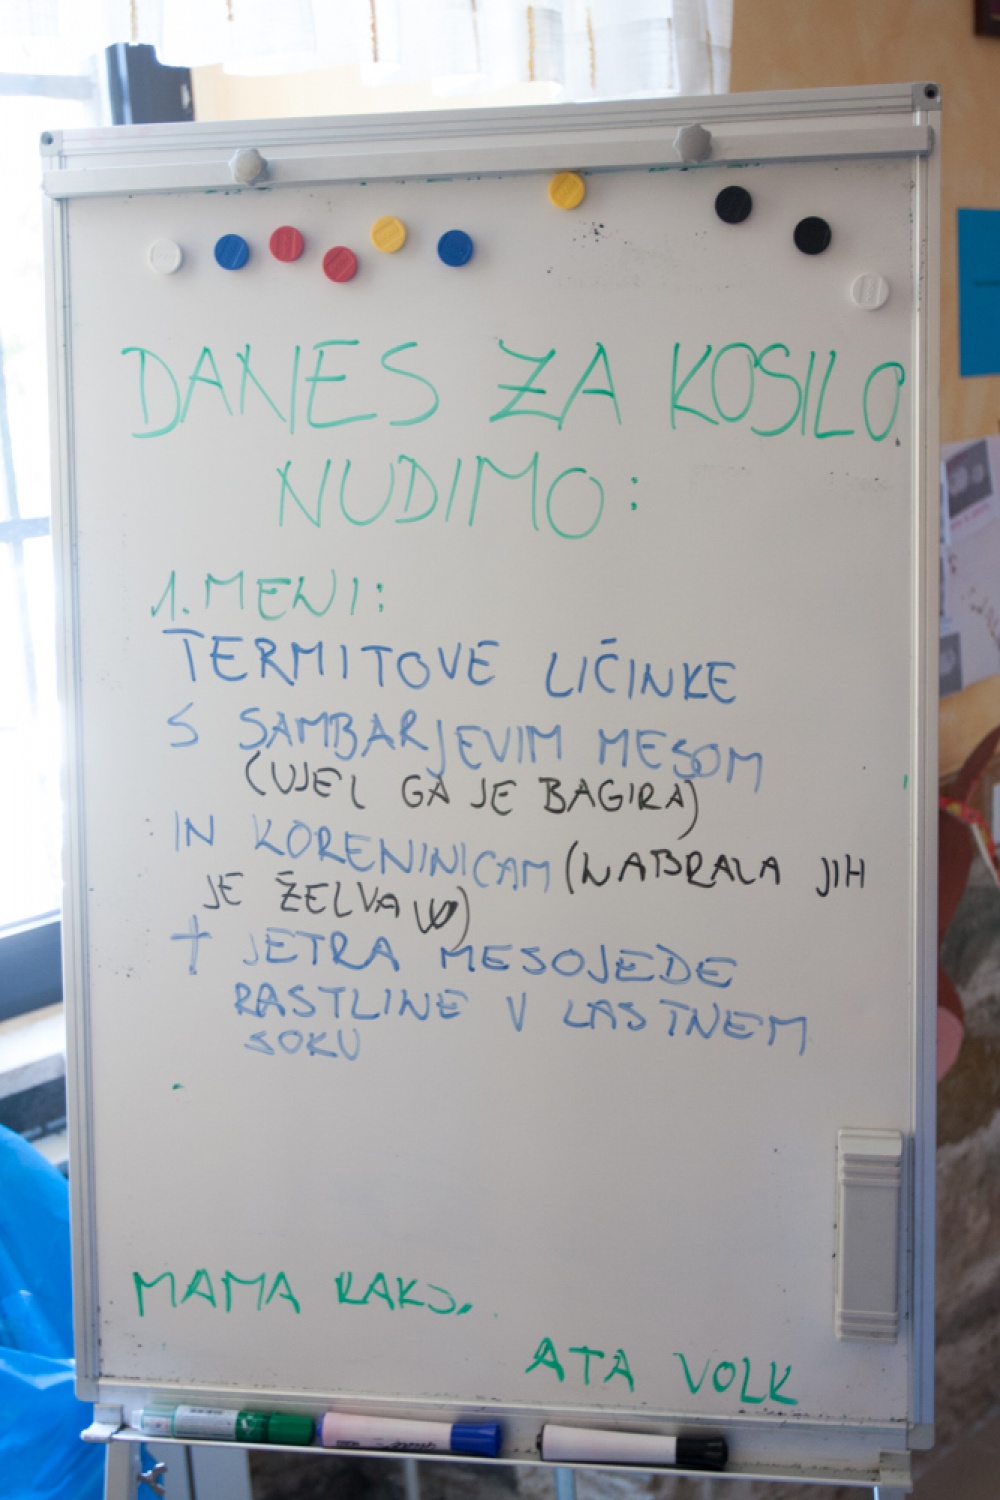 DANES ZA KOSILO
NUDIMO:
1. MENI:
TERMITOVE LIČINKE
S SAMBARJEVIM MESOM
(UJEL GA JE BAGIRA)
IN KORENINICAM (NABRALA JIH
JE ŽELVA)
+ JETRA MESOJEDE
RASTLINE V LASTNEM
SOKU
MAMA RAKŠ.
ATA VOLK